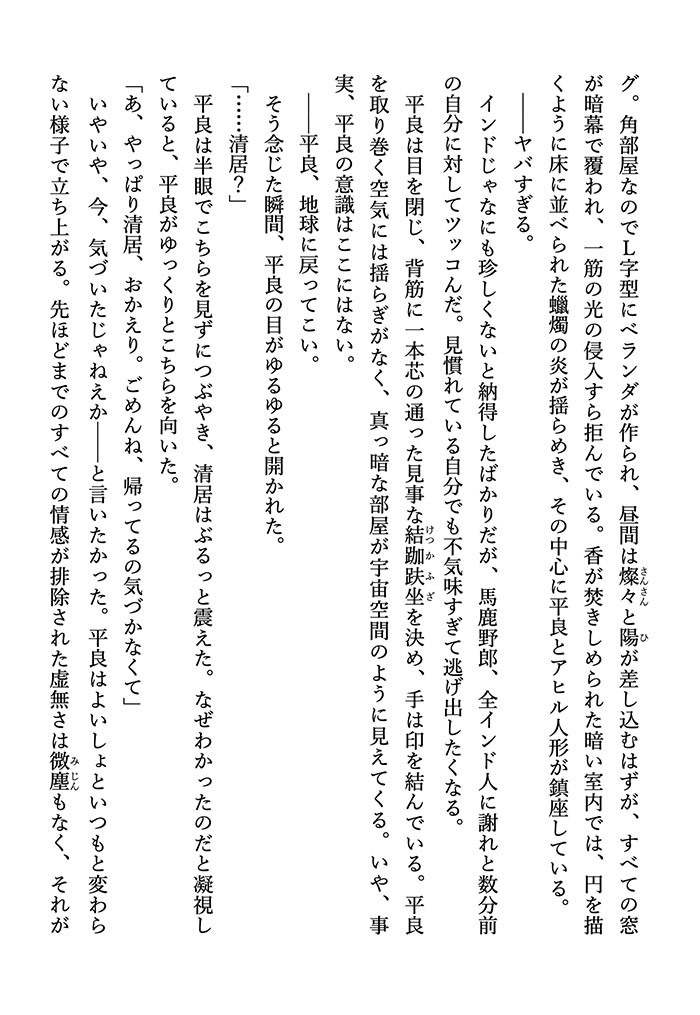 グ。角部屋なのでL字型にベランダが作られ、昼間は燦々と陽が差し込むはずが、すべての窓
が暗幕で覆われ、一筋の光の侵入すら拒んでいる。香が焚きしめられた暗い室内では、円を描
くように床に並べられた蠟燭の炎が揺らめき、その中心に平良とアヒル人形が鎮座している。
――ヤバすぎる。
インドじゃなにも珍しくないと納得したばかりだが、馬鹿野郎、全インド人に謝れと数分前
の自分に対してツッコんだ。見慣れている自分でも不気味すぎて逃げ出したくなる。
平良は目を閉じ、背筋に一本芯の通った見事な結跏趺坐を決め、手は印を結んでいる。平良
を取り巻く空気には揺らぎがなく、真っ暗な部屋が宇宙空間のように見えてくる。いや、事
実、平良の意識はここにはない。
――平良、地球に戻ってこい。
そう念じた瞬間、平良の目がゆるゆると開かれた。
「……清居？」
平良は半眼でこちらを見ずにつぶやき、清居はぶるっと震えた。なぜわかったのだと凝視し
ていると、平良がゆっくりとこちらを向いた。
「あ、やっぱり清居、おかえり。ごめんね、帰ってるの気づかなくて」
いやいや、今、気づいたじゃねえか――と言いたかった。平良はよいしょといつもと変わら
ない様子で立ち上がる。先ほどまでのすべての情感が排除された虚無さは微塵もなく、それが